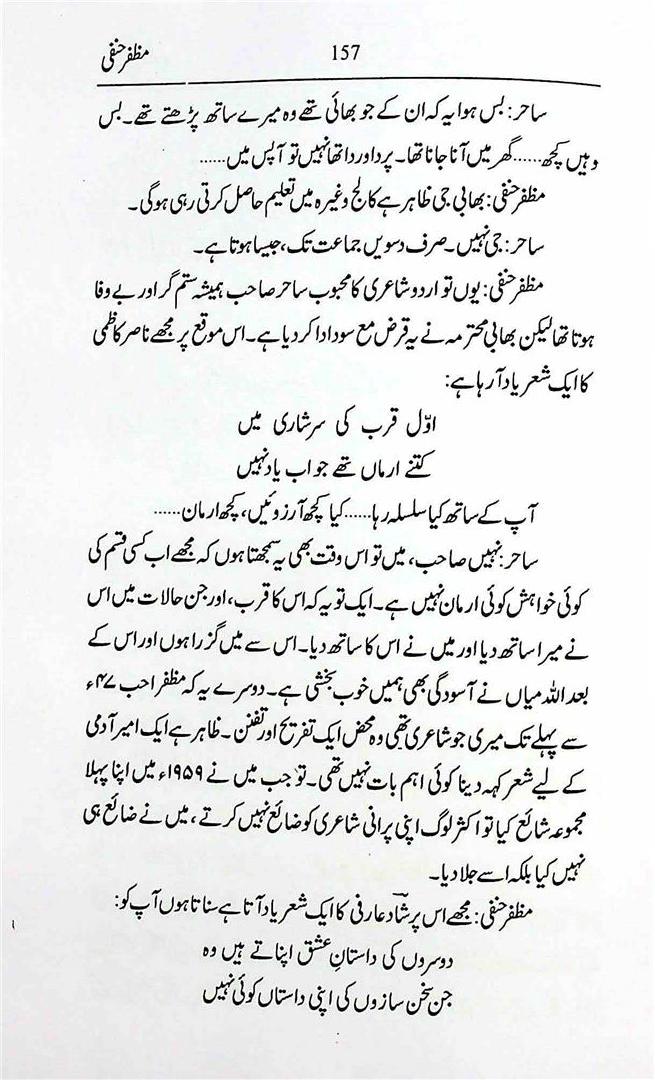 157 مظفر حنفی
ساحر: بس ہوا یہ کہ ان کے جو بھائی تھے وہ میرے ساتھ پڑھتے تھے۔ بس
وہیں کچھ...... گھر میں آنا جانا تھا۔ پردا وردا تھا نہیں تو آپس میں......
مظفر حنفی: بھابی جی ظاہر ہے کالج وغیرہ میں تعلیم حاصل کرتی رہی ہوگی۔
ساحر: جی نہیں۔ صرف دسویں جماعت تک، جیسا ہوتا ہے۔
مظفر حنفی: یوں تو اردو شاعری کا محبوب ساحر صاحب ہمیشہ ستم گر اور بے وفا
ہوتا تھا لیکن بھابی محترمہ نے یہ قرض مع سود ادا کر دیا ہے۔ اس موقع پر مجھے ناصر کاظمی
کا ایک شعر یاد آ رہا ہے:
اوّل قرب کی سرشاری میں
کتنے ارماں تھے جو اب یاد نہیں
آپ کے ساتھ کیا سلسلہ رہا...... کیا کچھ آرزوئیں، کچھ ارمان......
ساحر: نہیں صاحب، میں تو اس وقت بھی یہ سمجھتا ہوں کہ مجھے اب کسی قسم کی
کوئی خواہش کوئی ارمان نہیں ہے۔ ایک تو یہ کہ اس کا قرب، اور جن حالات میں اس
نے میرا ساتھ دیا اور میں نے اس کا ساتھ دیا۔ اس سے میں گزرا ہوں اور اس کے
بعد اللہ میاں نے آسودگی بھی ہمیں خوب بخشی ہے۔ دوسرے یہ کہ مظفر احب ۴۷ء
سے پہلے تک میری جو شاعری تھی وہ محض ایک تفریح اور تفنن۔ ظاہر ہے ایک امیر آدمی
کے لیے شعر کہہ دینا کوئی اہم بات نہیں تھی۔ تو جب میں نے ۱۹۵۹ء میں اپنا پہلا
مجموعہ شائع کیا تو اکثر لوگ اپنی پرانی شاعری کو ضائع نہیں کرتے، میں نے ضائع ہی
نہیں کیا بلکہ اسے جلا دیا۔
مظفر حنفی: مجھے اس پر شاد عارفی کا ایک شعر یاد آتا ہے سناتا ہوں آپ کو:
دوسروں کی داستانِ عشق اپناتے ہیں وہ
جن سخن سازوں کی اپنی داستاں کوئی نہیں